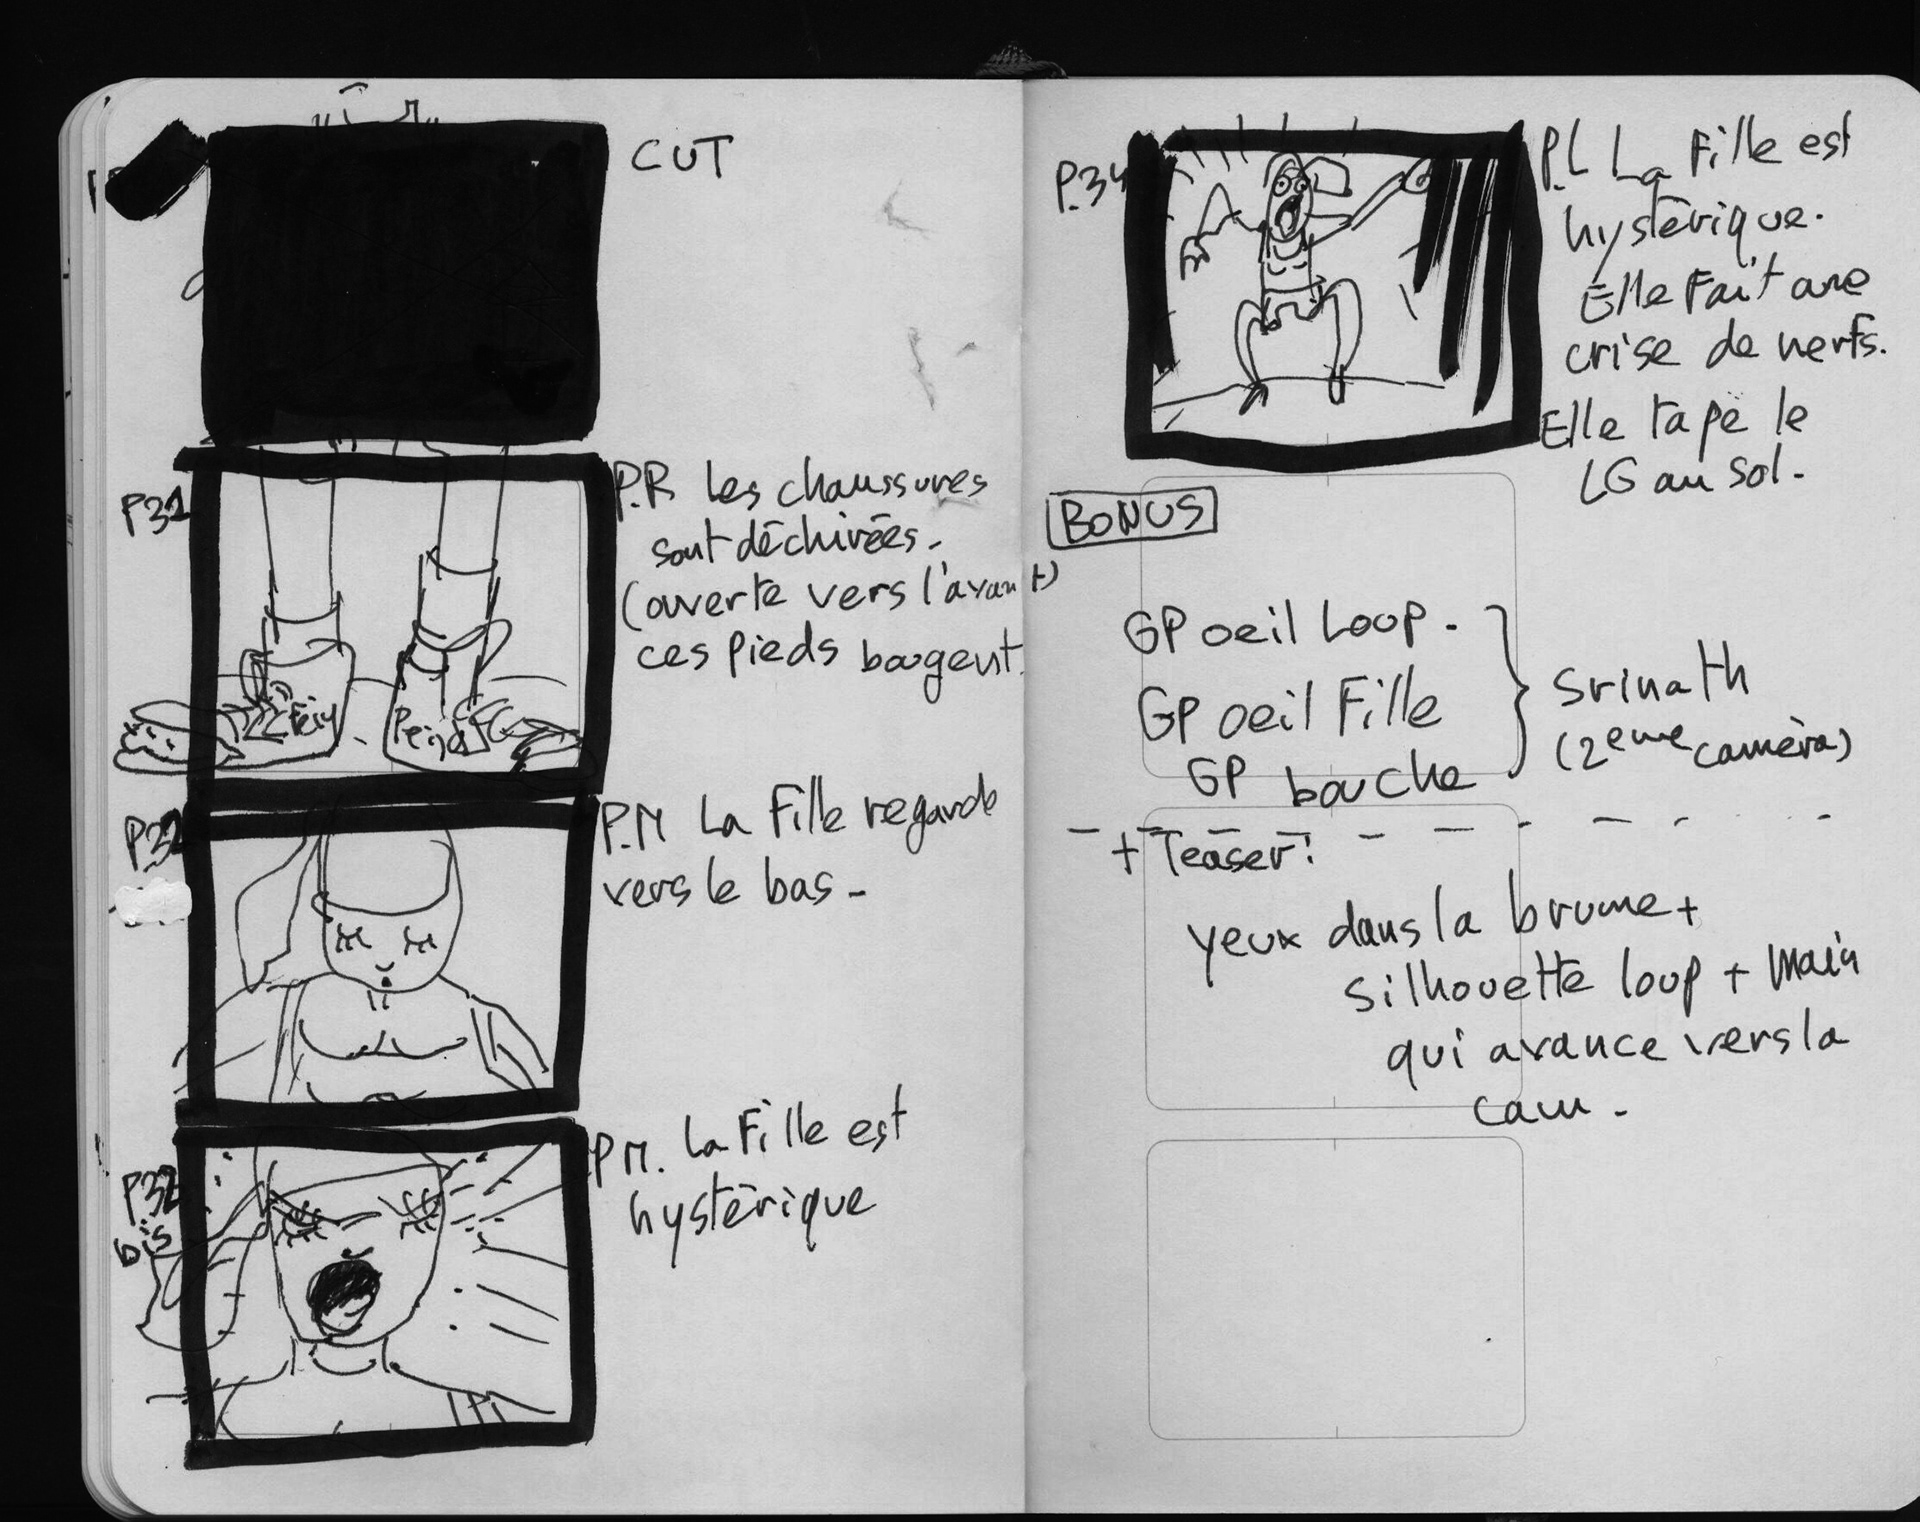 CUT
P31
P.R Les chaussures
sont déchirées.
(ouverte vers l'avant)
ces pieds bougent.
P32
P.M La Fille regarde
vers le bas -
P32
bis
PM. La Fille est
hystérique
P.34
P.L La Fille est
hystérique.
Elle Fait une
crise de nerfs.
Elle tape le
LG au sol.
BONUS
GP oeil Loup.
GP oeil Fille
GP bouche
Srinath
(2eme caméra)
+ Teaser:
yeux dans la brume +
silhouette loup + main
qui avance vers la
cam -